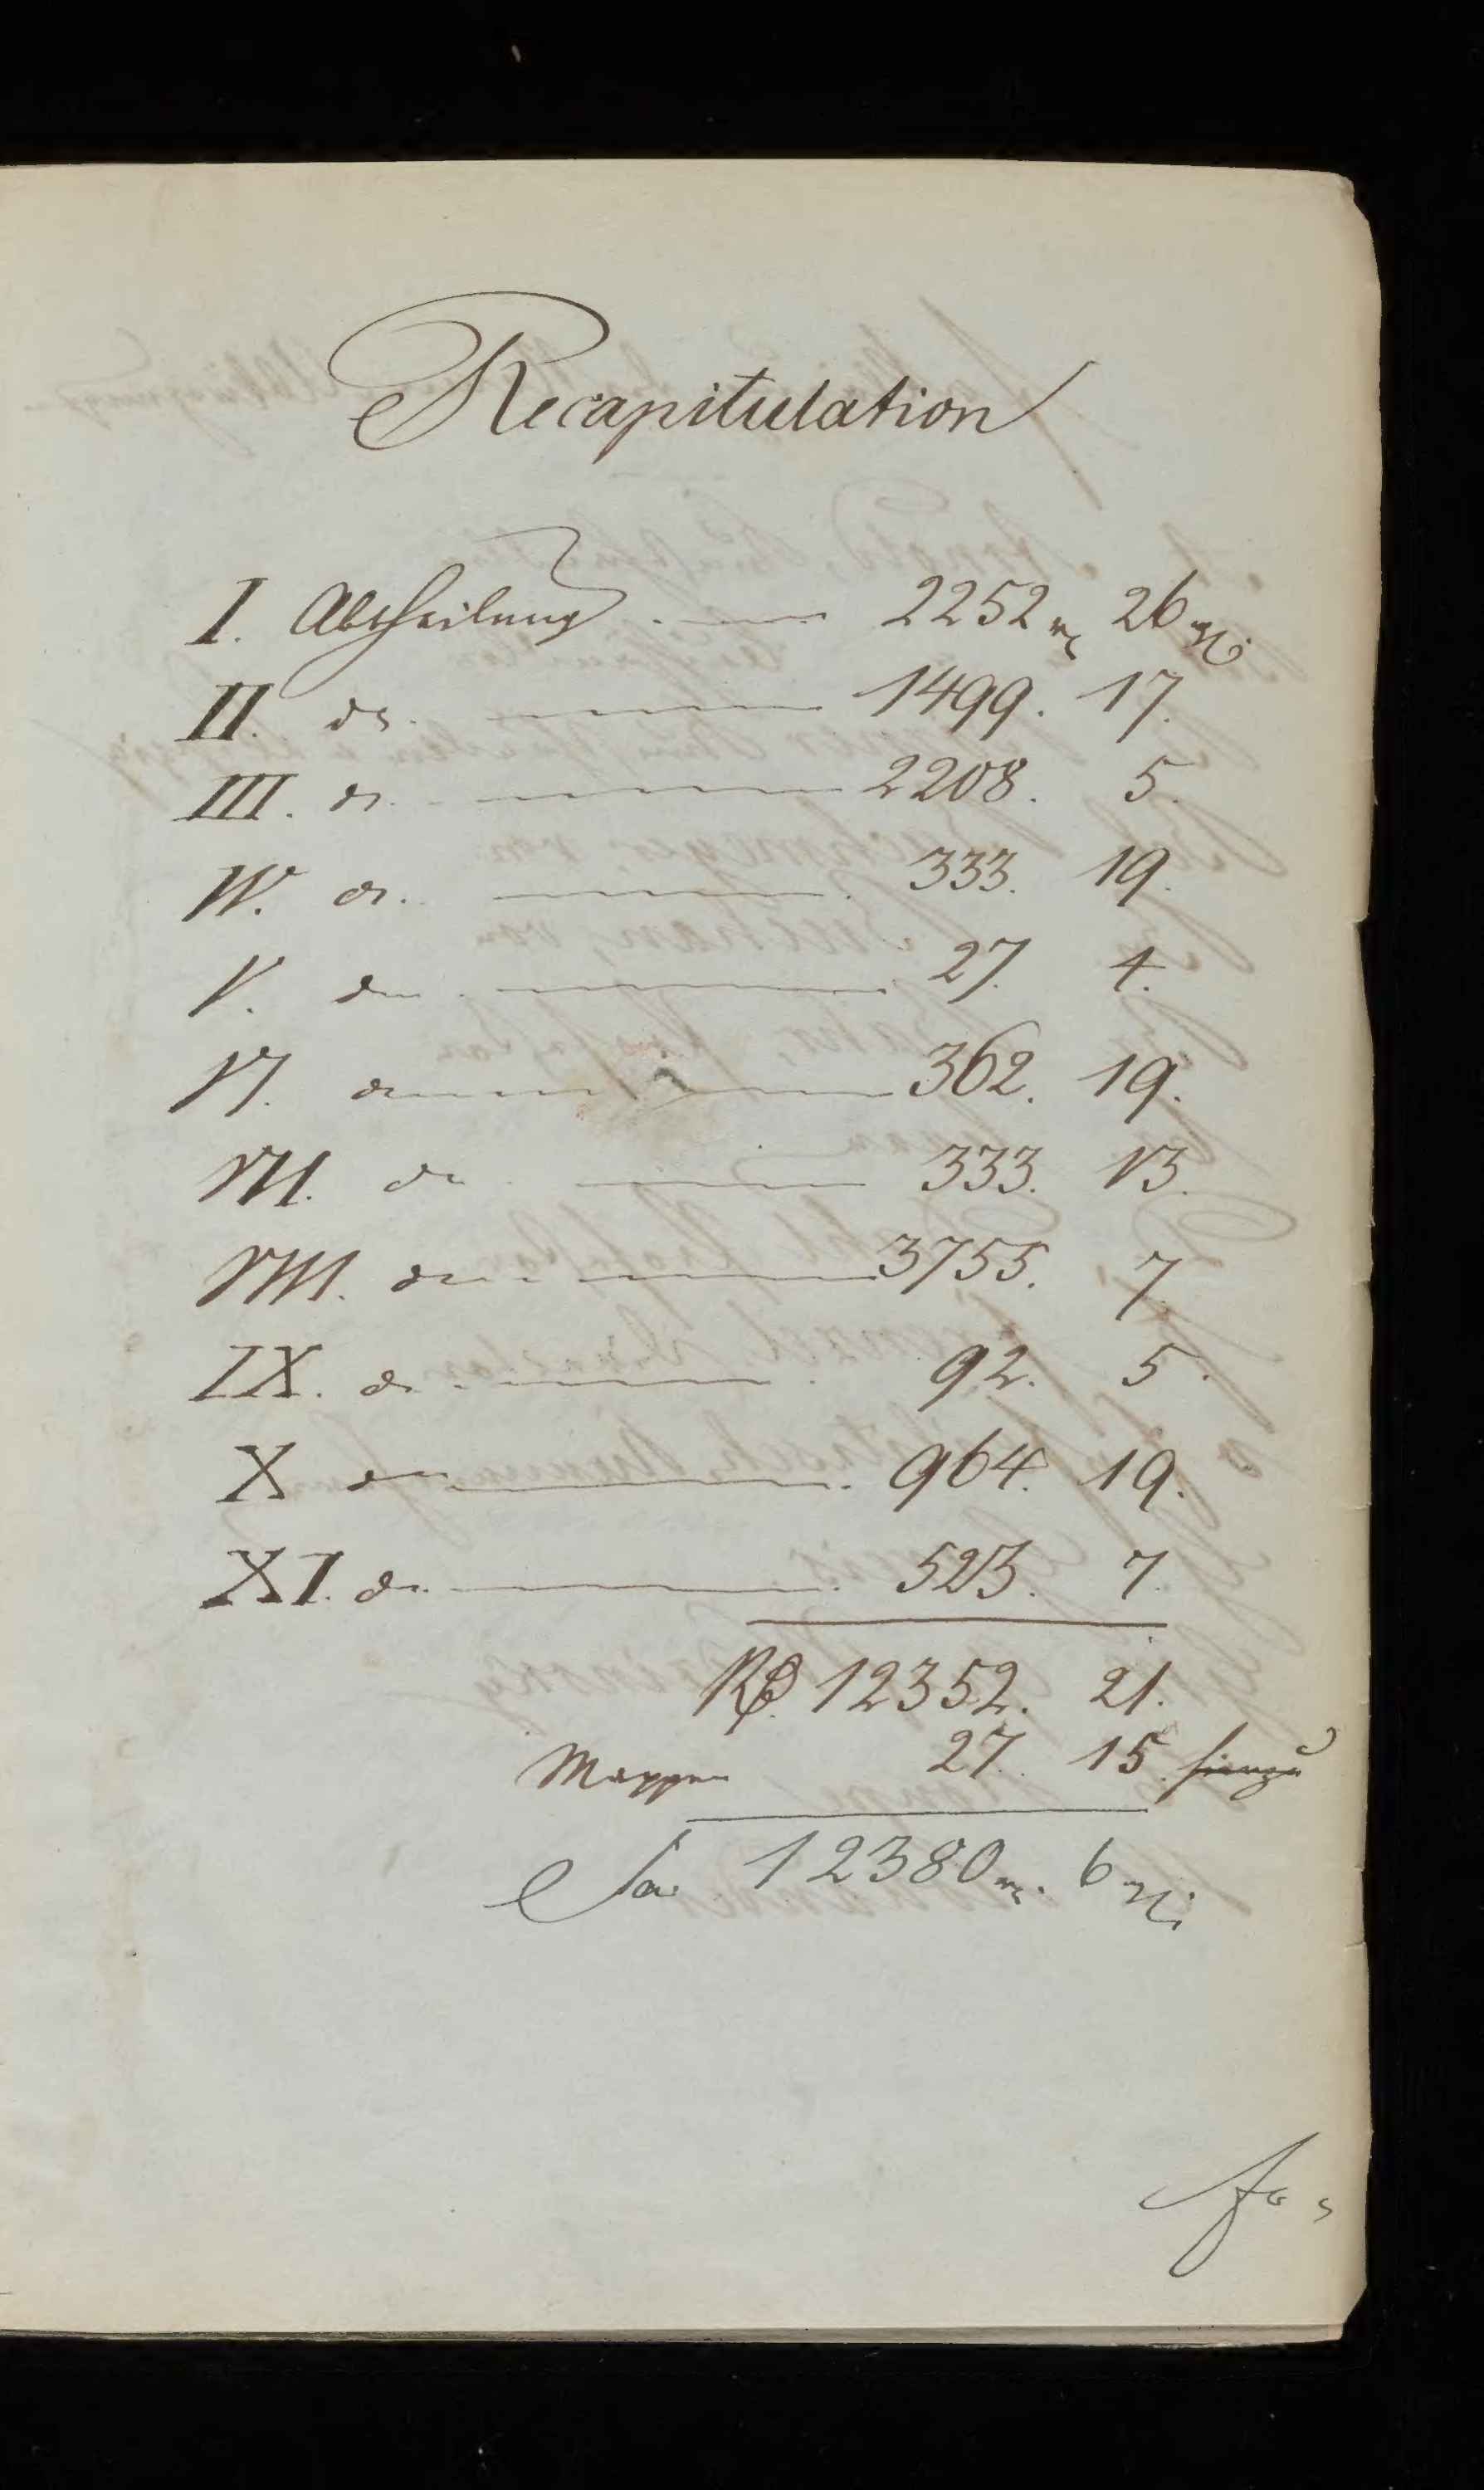 Recapitulation
I. Abtheilung 2252 rℓ 26 ngr.
II. do. 1499. 17.
III. do. 2208. 5.
IV. do. 333. 19.
V. do 27. 4.
VI. do 362. 19.
VII. do 333. 13.
VIII. do 3755. 7.
IX. do 92. 5.
X do 964. 19.
XI. do. 523. 7.
Rℓ. 12352. 21.
Mappen 27. 15. hinzu
Sa. 12380 rℓ. 6 ngr.